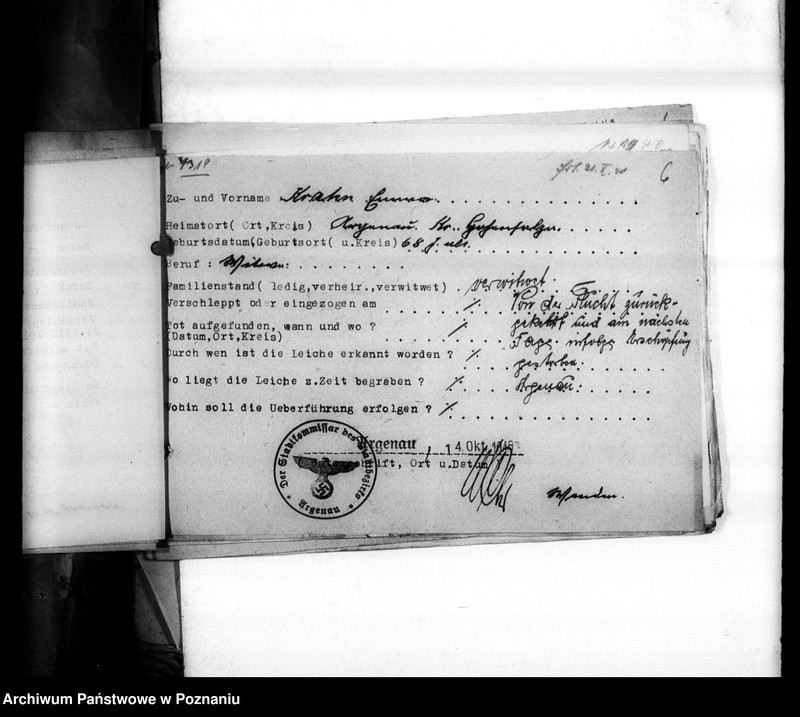 4319
6
Zu- und Vorname Krahn Emma.
Heimatort( Ort,Kreis) Argenau. Kr. Hohensalza.
Geburtsdatum(Geburtsort( u.Kreis) 68 J. alt.
Beruf : Witwe.
Familienstand( ledig,verheir.,verwitwet) . verwitwet.
Verschleppt oder eingezogen am ./. Von der Flucht zurück-
Tot aufgefunden, wann und wo ? ./. gekehrt und am nächsten
(Datum,Ort,Kreis) Tage infolge Erschöpfung
Durch wen ist die Leiche erkannt worden ? ./. gestorben.
Wo liegt die Leiche z.Zeit begraben ? ./. Argenau.
Wohin soll die Ueberführung erfolgen ? ./.
Argenau, 14. Okt. 1940
Unterschrift, Ort u.Datum
Der Stadtkommissar des Stadtbezirks
Argenau
Archiwum Państwowe w Poznaniu